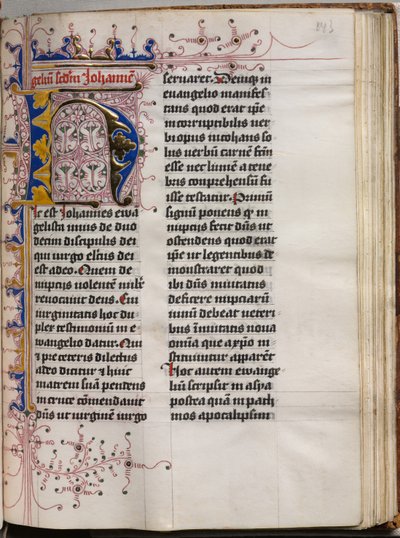 geliū scdm̄ Johannē
H
Ic est Johannes ewā
gelista unus de duo
decim discipulis dei
qui uirgo electus dei
est a deo. Quem de
nuptijs volentē
reuocauit deus. Cui
uirginitatis hoc du
plex testimoniū in e
wangelio datur. Qui
et pre ceteris dilectus
a deo dicitur et huic
matrem suā pendens
in cruce cōmendauit
dn̄s ut uirginē uirgo
seruaret. Deniqꝫ in
euangelio manifes
tans quod erat ip̄e
incorruptibilis uer
bi opus inchoans so
lus uerbū carnē fcm̄
esse nec lumē a tene
bris comprehensū fu
isse testatur. Primū
signū ponens qͥ in
nuptijs fecit dn̄s ut
ostendens quod erat
ip̄e ut legentibus de
monstraret quod
ibi dn̄s inuitatus
deficere nupciarū
uinū debeat ueteri
bus īmutatis noua
omīa que a xp̄o in
stituuntur appareāt
Hoc autem ewange
liū scripsit in asya
postea quā in path
mos apocalipsim